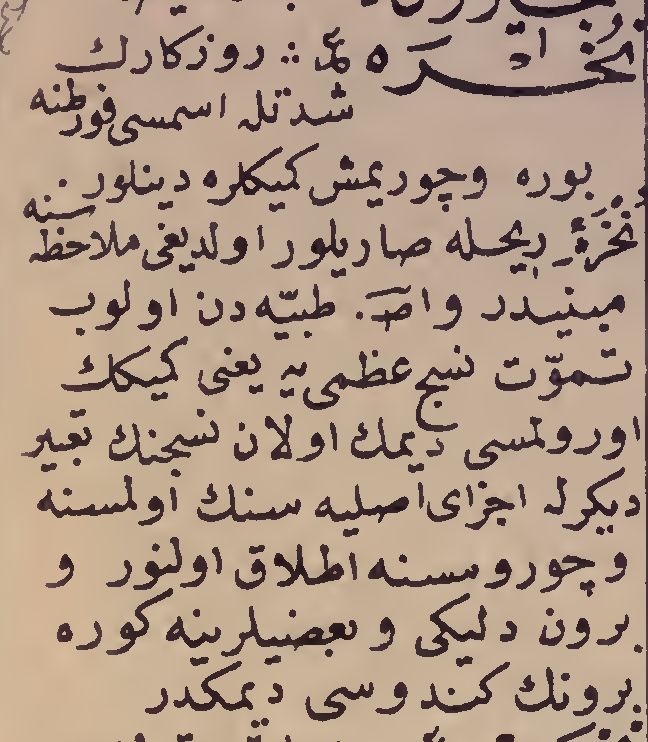 نخره ع :: روزكارك
شدتله اسمسى فورطنه
بوره و چوريمش كيكلره دينلور
نُخْرَةُ ريحله صاريلور اولديغى ملاحظه سنه
مبنيدر و اص. طبيّه دن اولوب
تموّت نسج عظمى يه يعنى كيكك
اورولمسى ديمك اولان نسجنك تعبير
ديكرله اجزاى اصليه سنك اولمسنه
و چوروسنه اطلاق اولنور و
برون دليكى و بعضيلرينه كوره
برونك كندوسى ديمكدر